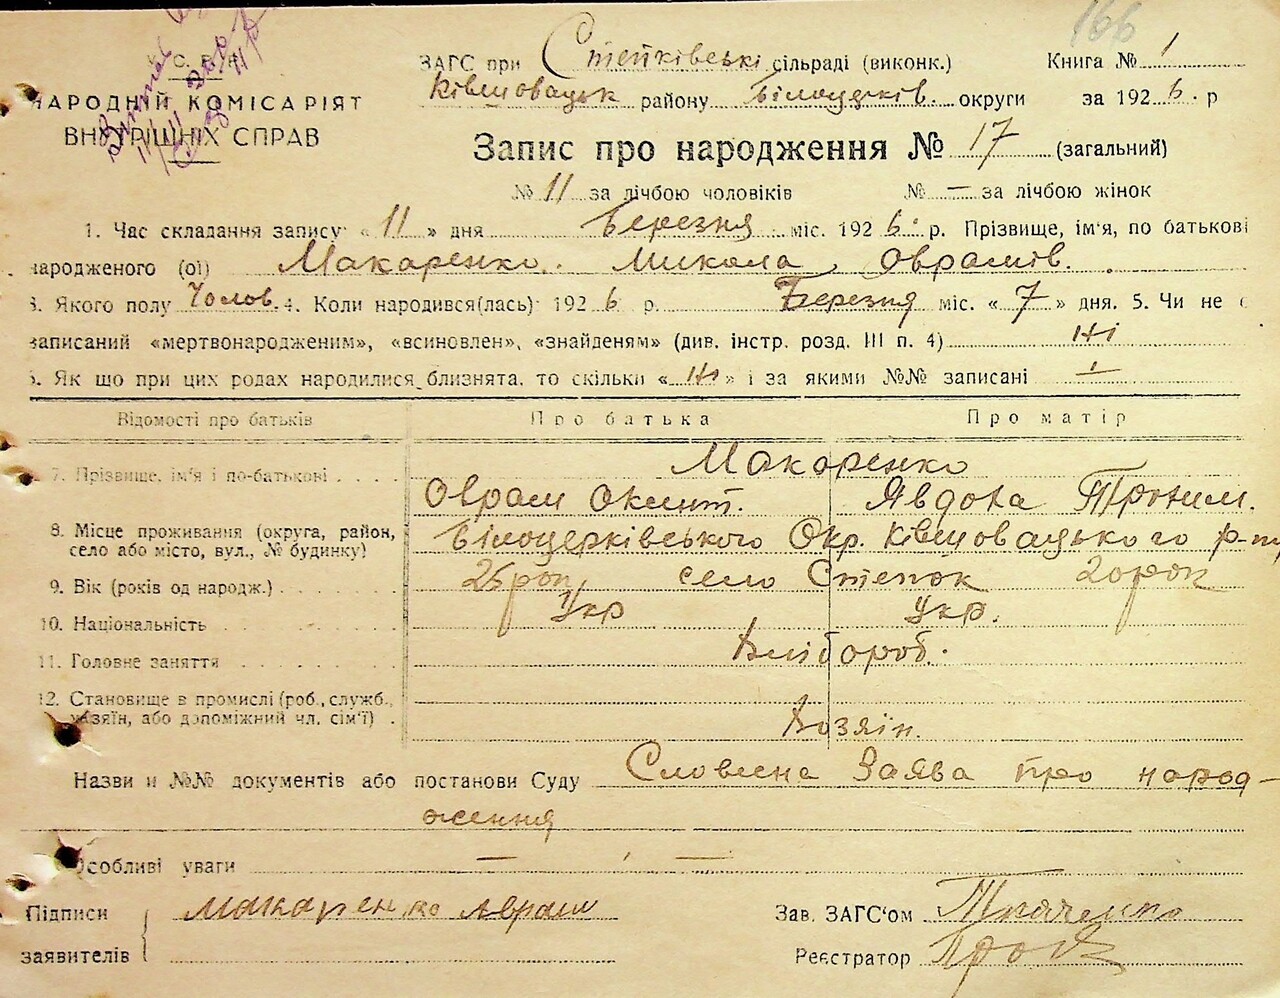 166
У. С. Р. Р.
НАРОДНІЙ КОМІСАРІЯТ
ВНУТРІШНІХ СПРАВ
ЗАГС при Степківські сільраді (виконк.) Книга № 1
Ківшовацьк району Білоцерків. округи за 1926. р
Запис про народження № 17 (загальний)
№ 11 за лічбою чоловіків № — за лічбою жінок
1. Час складання запису „ 11 » дня Березня міс. 1926. р. Прізвище, ім'я, по батькові
народженого (ої) Макаренко. Микола Оврамів.
3. Якого полу Чолов. 4. Коли народився(лась) 1926 р. Березня міс. «7» дня. 5. Чи не є
записаний «мертвонародженим», «всиновлен», «знайденям» (див. інстр. розд. III п. 4) Ні
6. Як що при цих родах народилися близнята. то скільки « Ні » і за якими №№ записані —
Відомості про батьків Про батька Про матір
7. Прізвище, ім'я і по-батькові Макаренко
Оврам Окент. Явдоха Трохим.
8. Місце проживання (округа, район, село або місто, вул., № будинку) Білоцерківського Окр. Ківшовацького р-ну
село Степок
9. Вік (років од народж.) 26 рок, 20 рок
10. Національність Укр Укр.
11. Головне заняття Хлібороб.
12. Становище в промислі (роб., служб., хазяїн, або допоміжний чл. сім'ї) Хозяін.
Назви и №№ документів або постанови Суду Словесна Заява про народ-
ження
Особливі уваги — —
Підписи заявителів Макаренко Аврам
Зав. ЗАГС'ом Ткаченко
Реєстратор